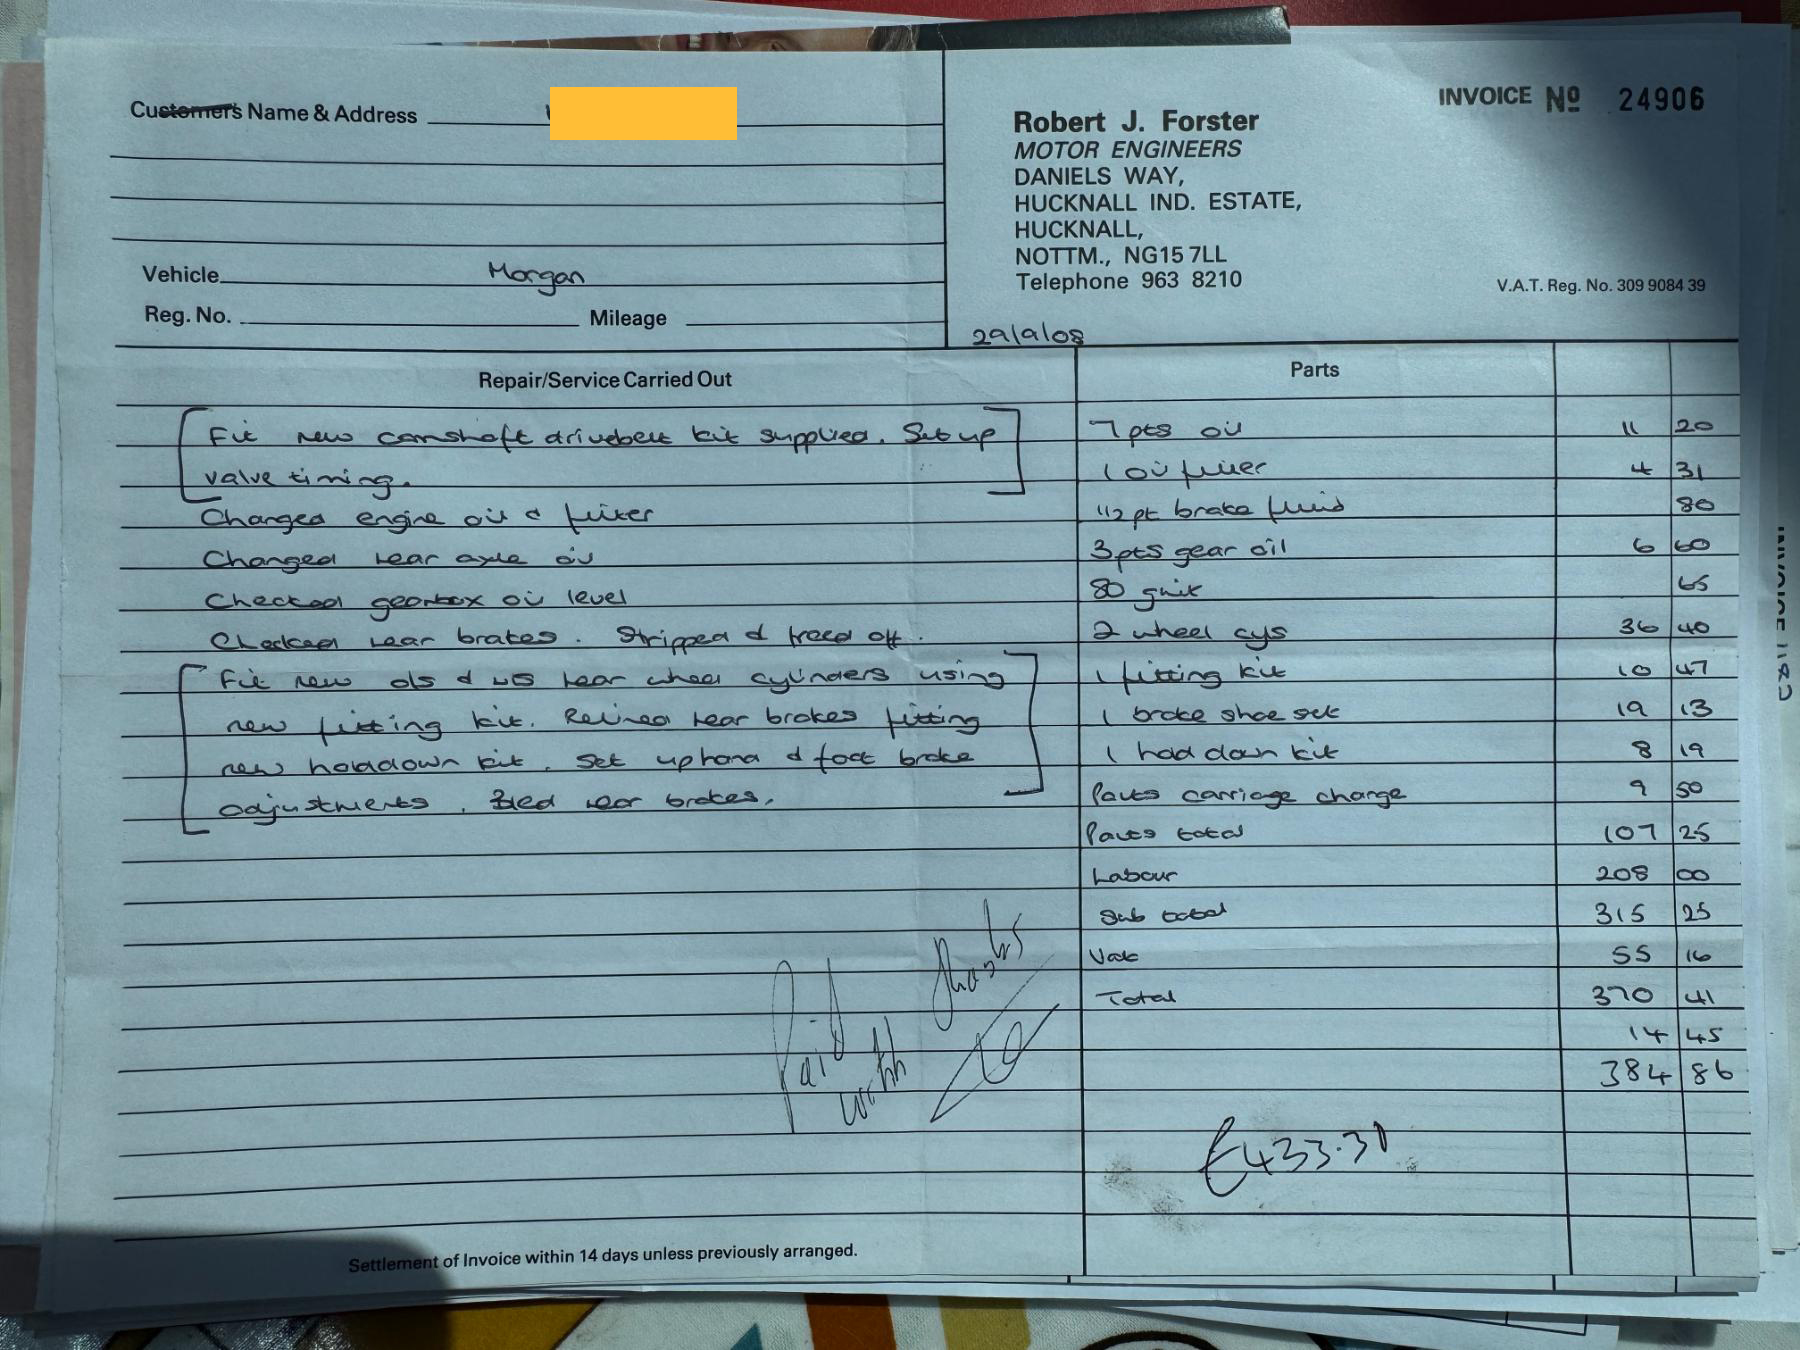 Customers Name & Address
Robert J. Forster
MOTOR ENGINEERS
DANIELS WAY,
HUCKNALL IND. ESTATE,
HUCKNALL,
NOTTM., NG15 7LL
Telephone 963 8210
INVOICE Nº 24906
V.A.T. Reg. No. 309 9084 39
Vehicle Morgan
Reg. No. Mileage
29/9/08
Repair/Service Carried Out
Fit new camshaft drivebelt kit supplied. Set up
valve timing.
Changed engine oil & filter
Changed rear axle oil
Checked gearbox oil level
Checked rear brakes. Stripped & freed off.
Fit new o/s & n/s rear wheel cylinders using
new fitting kit. Relined rear brakes fitting
new holddown kit. Set up hand & foot brake
adjustments. Bled rear brakes.
Parts
7 pts oil 11 20
1 oil filter 4 31
1/2 pt brake fluid 80
3 pts gear oil 6 60
80 65
2 wheel cys 36 40
1 fitting kit 10 47
1 brake shoe set 19 13
1 hold down kit 8 19
Parts carriage charge 9 50
Parts total 107 25
Labour 208 00
Sub total 315 25
Vat 55 16
Total 370 41
14 45
384 86
£433.31
Paid with thanks
Settlement of Invoice within 14 days unless previously arranged.
INVOICE 1182